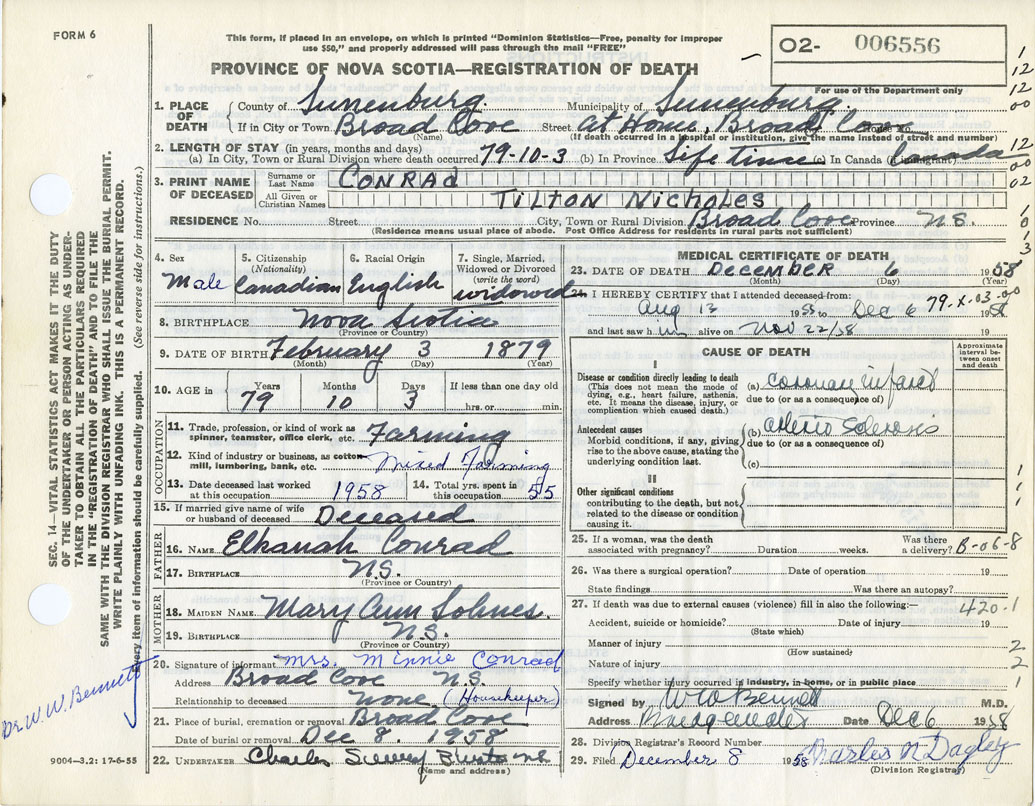 FORM 6
This form, if placed in an envelope, on which is printed "Dominion Statistics—Free, penalty for improper
use $50," and properly addressed will pass through the mail "FREE"
PROVINCE OF NOVA SCOTIA—REGISTRATION OF DEATH
O2- 006556
For use of the Department only
1. PLACE OF DEATH { County of Lunenburg. Municipality of Lunenburg.
If in City or Town Broad Cove Street at Home, Broad Cove
(Name) (If death occurred in a hospital or institution, give the name instead of street and number)
2. LENGTH OF STAY (in years, months and days)
(a) In City, Town or Rural Division where death occurred 79-10-3 (b) In Province Life Time (c) In Canada (if immigrant) Canada
3. PRINT NAME OF DECEASED { Surname or Last Name CONRAD
All Given or Christian Names TILTON NICHOLES
RESIDENCE No. Street City, Town or Rural Division Broad Cove Province N.S.
(Residence means usual place of abode. Post Office Address for residents in rural parts not sufficient)
4. Sex Male
5. Citizenship (Nationality) Canadian
6. Racial Origin English
7. Single, Married, Widowed or Divorced (write the word) widowed
8. BIRTHPLACE Nova Scotia
(Province or Country)
9. DATE OF BIRTH February 3 1879
(Month) (Day) (Year)
10. AGE in { Years Months Days If less than one day old
79 10 3 hrs. or min.
OCCUPATION
11. Trade, profession, or kind of work as spinner, teamster, office clerk, etc. Farming
12. Kind of industry or business, as cotton mill, lumbering, bank, etc. Mixed Farming
13. Date deceased last worked at this occupation 1958 14. Total yrs. spent in this occupation 55
15. If married give name of wife or husband of deceased Deceased
FATHER
16. NAME Elkanah Conrad
17. BIRTHPLACE N.S.
(Province or Country)
MOTHER
18. MAIDEN NAME Mary Ann Sohnes.
19. BIRTHPLACE N.S.
(Province or Country)
20. Signature of informant Mrs. Minnie Conrad
Address Broad Cove N.S.
Relationship to deceased None (Housekeeper)
21. Place of burial, cremation or removal Broad Cove
Date of burial or removal Dec 8. 1958
22. UNDERTAKER Charles
(Name and address)
9004—3.2: 17-6-55
MEDICAL CERTIFICATE OF DEATH
23. DATE OF DEATH DECEMBER 6 1958
(Month) (Day) (Year)
24. I HEREBY CERTIFY that I attended deceased from:
79.X.03.00
Aug 13 1955 to Dec 6 1958
and last saw him alive on Nov 22/58 19
CAUSE OF DEATH
Approximate interval between onset and death
I
Disease or condition directly leading to death
(This does not mean the mode of dying, e.g., heart failure, asthenia, etc. It means the disease, injury, or complication which caused death.)
(a) Coronary infarct
due to (or as a consequence of)
Antecedent causes
Morbid conditions, if any, giving rise to the above cause, stating the underlying condition last.
(b) Arterio Sclerosis
due to (or as a consequence of)
(c)
II
Other significant conditions
contributing to the death, but not related to the disease or condition causing it.
25. If a woman, was the death associated with pregnancy? Duration weeks. Was there a delivery? B-06-8
26. Was there a surgical operation? Date of operation 19
State findings Was there an autopsy?
27. If death was due to external causes (violence) fill in also the following:— 420.1
Accident, suicide or homicide? Date of injury 19
(State which)
Manner of injury 2
(How sustained)
Nature of injury 2
Specify whether injury occurred in industry, in home, or in public place 1
Signed by W W Bennett M.D.
Address Bridgewater Date Dec 6 1958
28. Division Registrar's Record Number
29. Filed December 8 1958 Charles N Dagley
(Division Registrar)
SEC. 14—VITAL STATISTICS ACT MAKES IT THE DUTY
OF THE UNDERTAKER OR PERSON ACTING AS UNDER-
TAKER TO OBTAIN ALL THE PARTICULARS REQUIRED
IN THE "REGISTRATION OF DEATH" AND TO FILE THE
SAME WITH THE DIVISION REGISTRAR WHO SHALL ISSUE THE BURIAL PERMIT.
WRITE PLAINLY WITH UNFADING INK. THIS IS A PERMANENT RECORD.
Every item of information should be carefully supplied. (See reverse side for instructions.)
Dr. W. W. Bennett
1
12
00
12
00
02
0
1
3
1
1
1